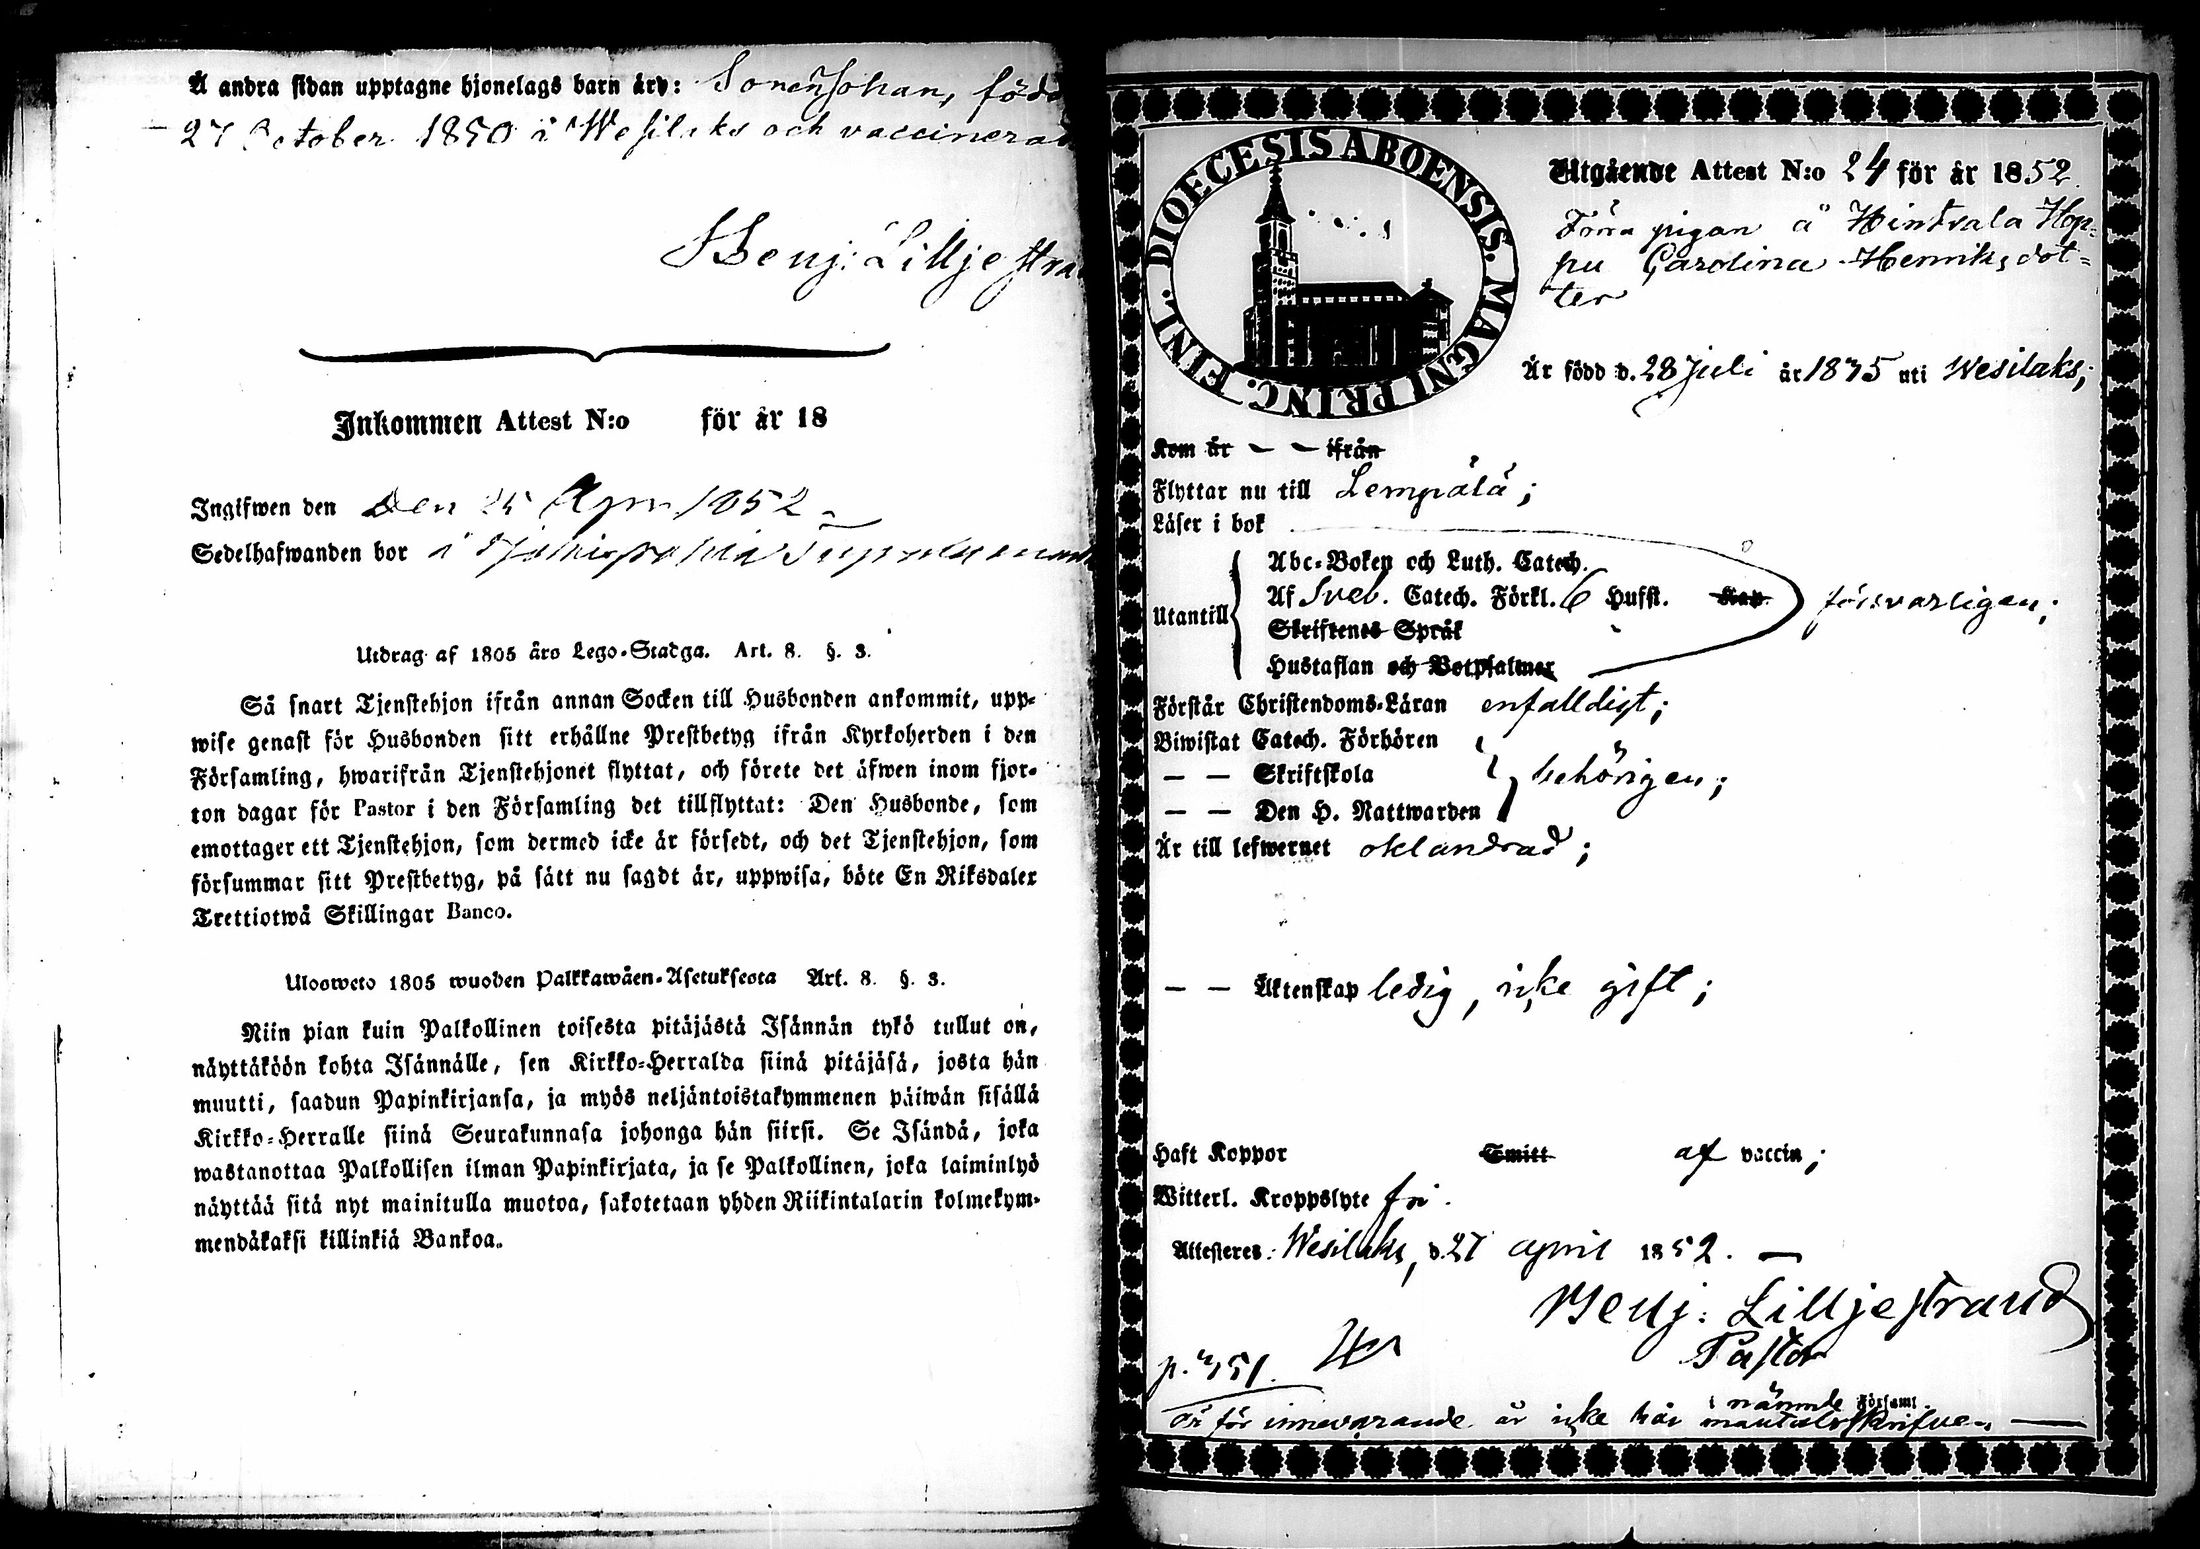 Å andra sidan upptagne hjonelags barn äro: Sonen Johan, född
27 October 1850 i Wesilaks och vaccinerad
Benj: Lilljestra
Inkommen Attest N:o för år 18
Ingifwen den Den 25 Apr 1852
Sedelhafwanden bor i
Utdrag af 1805 års Lego-Stadga. Art. 8. §. 3.
Så snart Tjenstehjon ifrån annan Socken till Husbonden ankommit, upp-
wise genast för Husbonden sitt erhållne Prestbetyg ifrån Kyrkoherden i den
Församling, hwarifrån Tjenstehjonet flyttat, och förete det äfwen inom fjor-
ton dagar för Pastor i den Församling det tillflyttat: Den Husbonde, som
emottager ett Tjenstehjon, som dermed icke är försedt, och det Tjenstehjon, som
försummar sitt Prestbetyg, på sätt nu sagdt är, uppwisa, böte En Riksdaler
Trettiotwå Skillingar Banco.
Ulosweto 1805 wuoden Palkkawäen-Asetuksesta Art. 8. §. 3.
Niin pian kuin Palkollinen toisesta pitäjästä Isännän tykö tullut on,
näyttäköön kohta Isännälle, sen Kirkko-Herralda siinä pitäjäsä, josta hän
muutti, saadun Papinkirjansa, ja myös neljäntoistakymmenen päiwän sisällä
Kirkko-Herralle siinä Seurakunnasa johonga hän siirsi. Se Isändä, joka
wastanottaa Palkollisen ilman Papinkirjata, ja se Palkollinen, joka laiminlyö
näyttää sitä nyt mainitulla muotoa, sakotetaan yhden Riikintalarin kolmekym-
mendäkaksi killinkiä Bankoa.
DIOECESIS ABOENSIS. MAGNI PRINC. FINL.
Utgående Attest N:o 24 för år 1852.
Förra pigan å Hinkvala Hop-
pu Carolina Henriksdot-
ter
Är född d. 28 Juli år 1835 uti Wesilaks;
Kom år – – ifrån
Flyttar nu till Lempälä;
Läser i bok
Abc-Boken och Luth. Catech.
Utantill Af Sveb. Catech. Förkl. 6 Hufst. Kap. försvarligen;
Skriftenes Språk
Hustaflan och Botpsalmer
Förstår Christendoms-Läran enfalldigt;
Biwistat Catech. Förhören
— — Skriftskola behörigen;
— — Den H. Nattwarden
Är till lefwernet oklandrad;
— — Äktenskap ledig, icke gift;
Haft Koppor Smitt af vaccin;
Witterl. Kroppslyte fri.
Attesteres: Wesilaks, d. 27 april 1852. —
Benj: Lilljestrand
Pastor
p. 351.
i nämnde Församl.
Är för innevarande år icke här mantalsskrifven. —